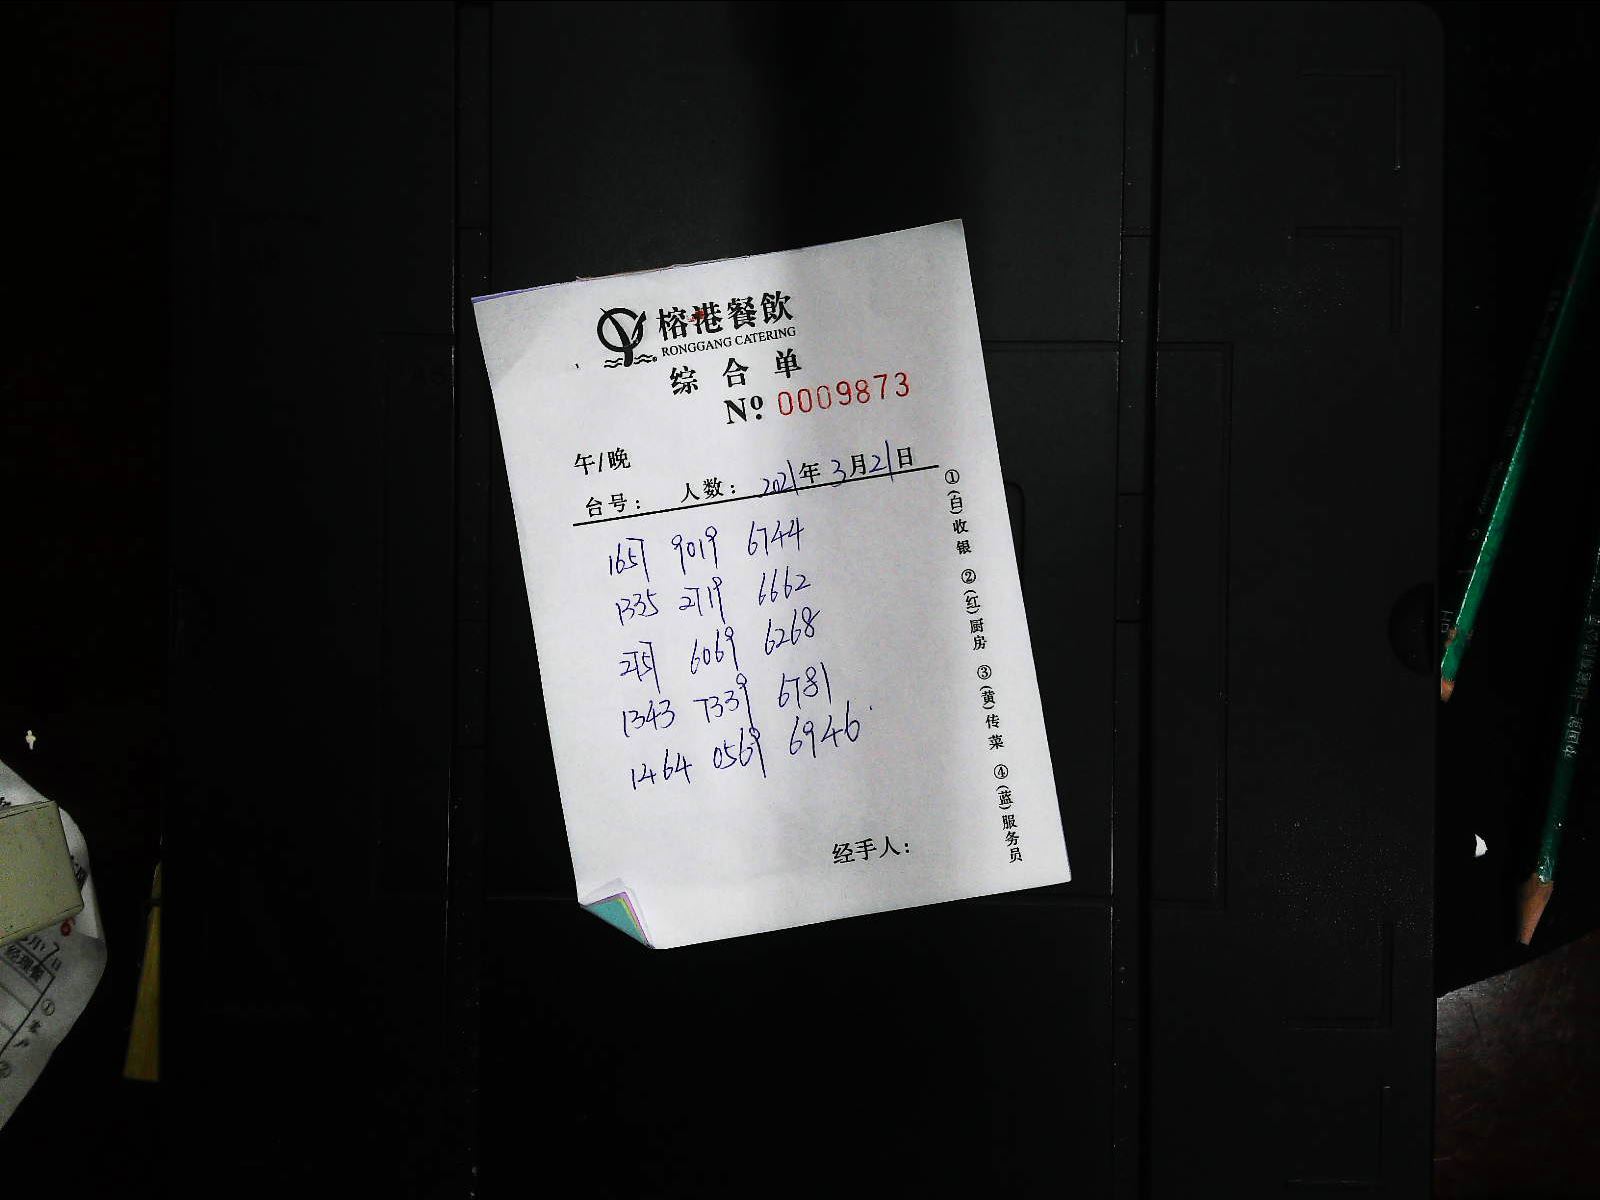 榕港餐飲
RONGGANG CATERING
综合单
Nº 0009873
午/晚
台号： 人数： 2021年3月21日
1657 9019 6744
1335 2719 6662
2757 6069 6268
1343 7339 6781
1464 0569 6946
经手人：
①(白)收银 ②(红)厨房 ③(黄)传菜 ④(蓝)服务员
经理餐
①